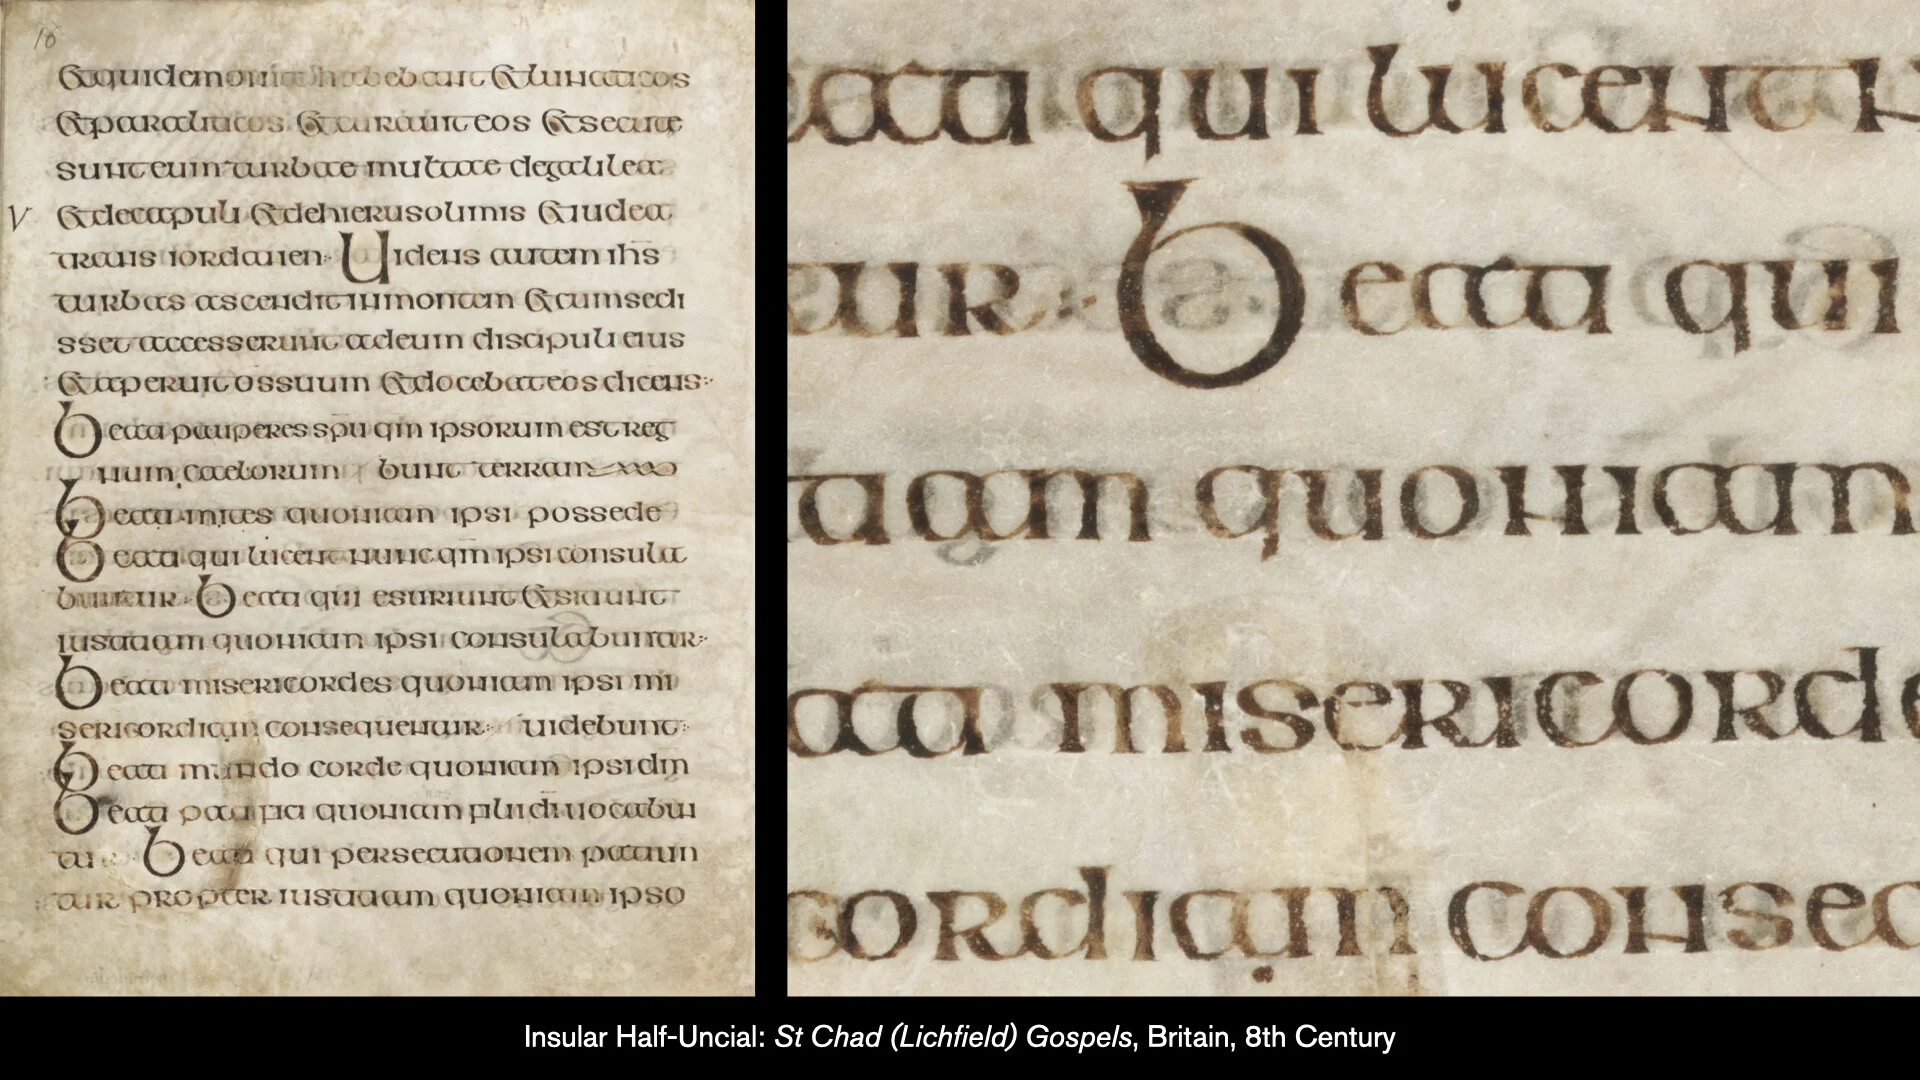 16
&qui demonia habebant &lunaticos
&paraliticos &curauit eos &secute
sunt eum turbae multae degalilea
V &decapuli &dehierusolimis &iudea
trans iordanen· Uidens autem ihs̄
turbas ascendit inmontem &cumsedi
sset accesserunt adeum discipuli eius
&aperuit ossuum &docebat eos dicens
Beati pauperes spū qm̄ ipsorum est reg
num caelorum bunt terram
Beati mites quoniam ipsi possede
Beati qui lucent nunc qm̄ ipsi consula
buntur· Beati qui esuriunt &sitiunt
iustitiam quoniam ipsi consulabuntur
Beati misericordes quoniam ipsi mi
sericordiam consequentur uidebunt
Beati mundo corde quoniam ipsi dm̄
Beati pacifici quoniam filii dī uocabun
tur Beati qui persecutionem patiun
tur propter iustitiam quoniam ipso
eati qui lucent n
tur· Beati qui
tiam quoniam
ati misericorde
cordiam conseq
Insular Half-Uncial: St Chad (Lichfield) Gospels, Britain, 8th Century